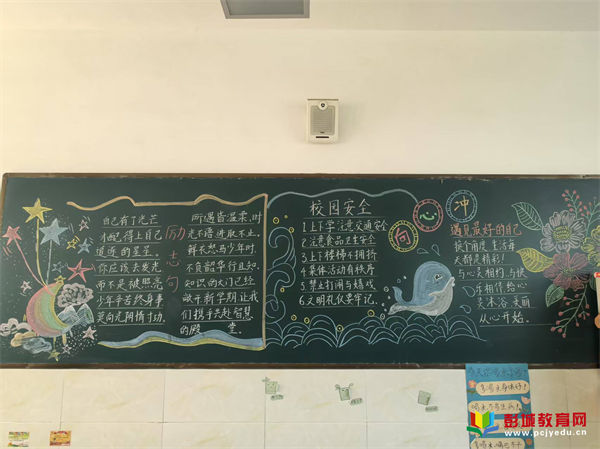 自己有了光芒
才配得上自己
追逐的星星。
你应该去发光
而不是被照亮
少年辛苦终身事
莫向光阴惰寸功.
励志句
所遇皆温柔,时
光不语进取不止.
鲜衣怒马少年时
不负韶华行且知
知识的大门已经
敞开新学期让我
们携手共赴智慧
的殿堂.
校园安全
1.上下学注意交通安全
2.注意食品卫生安全
3.上下楼梯不拥挤
4.集体活动有秩序
5.禁止打闹与嬉戏
6.文明礼仪要牢记。
向心冲
遇见最好的自己
换个角度生活每
天都是精彩!
与心灵相约.与快
乐相伴给心
灵沐浴.美丽
从心开始。
彭城教育网
www.pcjyedu.cn